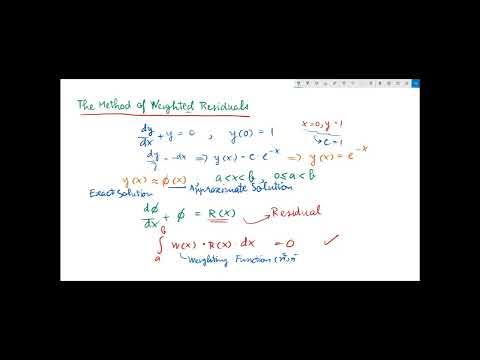 The Method of Weighted Residuals
dy/dx + y = 0 , y(0) = 1
x=0, y=1
C = 1
dy/y = -dx ⇒ y(x) = C e^-x ⇒ y(x) = e^-x
y(x) ≈ φ(x) a<x<b, 0≤a<b
Exact Solution Approximate Solution
dφ/dx + φ = R(x) → Residual
∫_a^b w(x) · R(x) dx = 0 ✓
Weighting Function